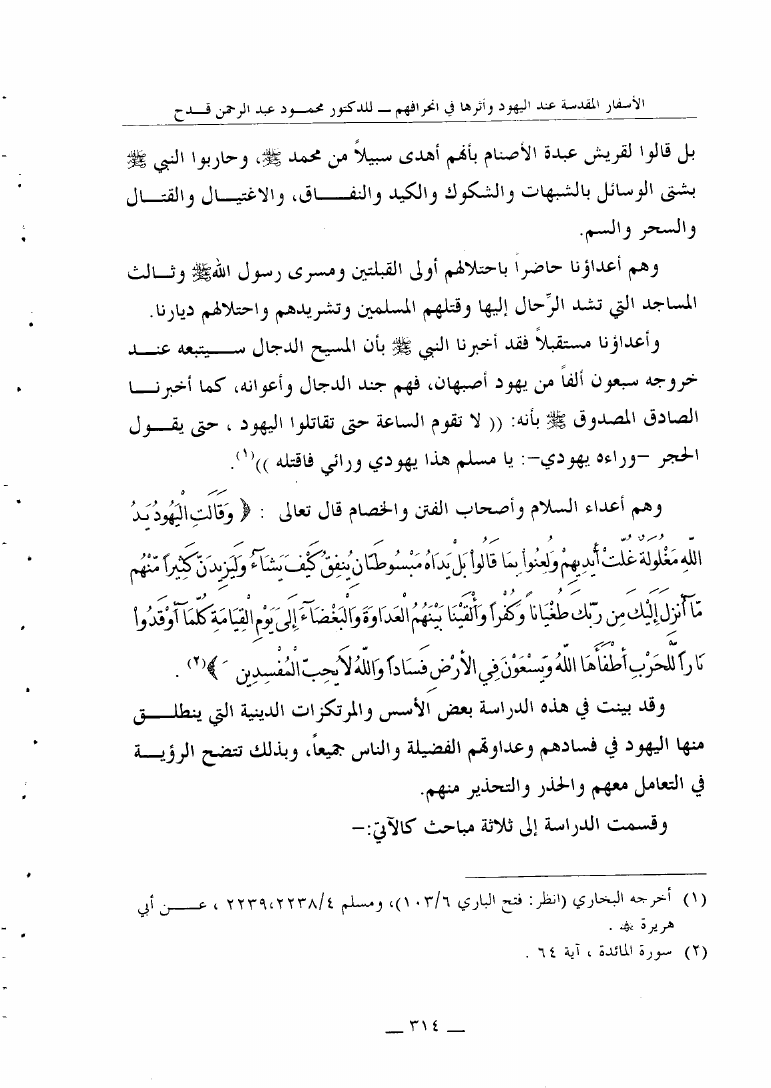 الأسفار المقدسة عند اليهود وأثرها في انحرافهم ــ للدكتور محمــود عبد الرحمن قــدح
بل قالوا لقريش عبدة الأصنام بأنهم أهدى سبيلاً من محمد ﷺ، وحاربوا النبي ﷺ
بشتى الوسائل بالشبهات والشكوك والكيد والنفــــاق، والاغتيــال والقتــال
والسحر والسم.
وهم أعداؤنا حاضراً باحتلالهم أولى القبلتين ومسرى رسول الله ﷺ وثــالث
المساجد التي تشد الرِّحال إليها وقتلهم المسلمين وتشريدهم واحتلالهم ديارنا.
وأعداؤنا مستقبلاً فقد أخبرنا النبي ﷺ بأن المسيح الدجال ســيتبعه عنــد
خروجه سبعون ألفاً من يهود أصبهان، فهم جند الدجال وأعوانه، كما أخبرنــا
الصادق المصدوق ﷺ بأنه: (( لا تقوم الساعة حتى تقاتلوا اليهود ، حتى يقــول
الحجر –وراءه يهودي–: يا مسلم هذا يهودي ورائي فاقتله ))(١).
وهم أعداء السلام وأصحاب الفتن والخصام قال تعالى : ﴿ وَقَالَتِ الْيَهُودُ يَدُ
اللهِ مَغْلُولَةٌ غُلَّتْ أَيْدِيهِمْ وَلُعِنُواْ بِمَا قَالُواْ بَلْ يَدَاهُ مَبْسُوطَتَانِ يُنفِقُ كَيْفَ يَشَآءُ وَلَيَزِيدَنَّ كَثِيراً مِّنْهُم
مَّآ أُنزِلَ إِلَيْكَ مِن رَّبِّكَ طُغْيَاناً وَكُفْراً وَأَلْقَيْنَا بَيْنَهُمُ الْعَدَاوَةَ وَالْبَغْضَآءَ إِلَى يَوْمِ الْقِيَامَةِ كُلَّمَآ أَوْقَدُواْ
نَاراً لِّلْحَرْبِ أَطْفَأَهَا اللهُ وَيَسْعَوْنَ فِي الأَرْضِ فَسَاداً وَاللهُ لاَ يُحِبُّ الْمُفْسِدِينَ ﴾(٢) .
وقد بينت في هذه الدراسة بعض الأسس والمرتكزات الدينية التي ينطلــق
منها اليهود في فسادهم وعداوتهم الفضيلة والناس جميعاً، وبذلك تتضح الرؤيــة
في التعامل معهم والحذر والتحذير منهم.
وقسمت الدراسة إلى ثلاثة مباحث كالآتي:–
(١) أخرجه البخاري (انظر: فتح الباري ١٠٣/٦)، ومسلم ٢٢٣٨/٤،٢٢٣٩ ، عـــن أبي
هريرة ﷺ .
(٢) سورة المائدة ، آية ٦٤ .
ــ ٣١٤ ــ